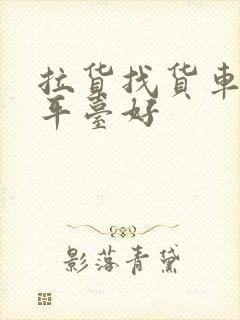 拉货找货车
平臺好
影落青黛